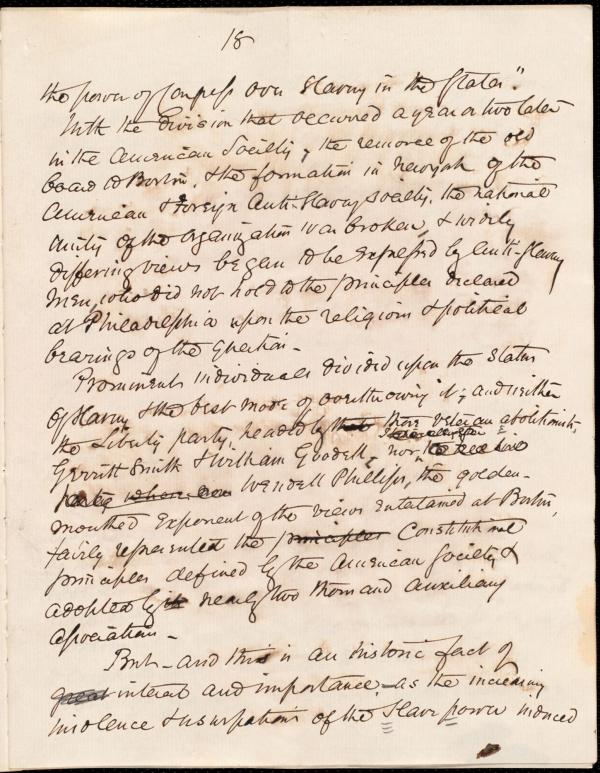 18
the power of Congress over Slavery in the States."
With the division that occurred a year or two later
in the American Society, the remove of the old
board to Boston, & the formation in New York of the
American & Foreign Anti-Slavery Society, the national
unity of the organization was broken, & widely
differing views began to be expressed by anti-slavery
men, who did not hold to the principles declared
at Philadelphia upon the religious & political
bearings of the Question -
Prominent individuals divided upon the status
of Slavery & the best mode of overthrowing it; and neither
the Liberty party, headed by those veteran abolitionists
Gerritt Smith & William Goodell, nor
party whereon Wendell Phillips, the golden-
mouthed exponent of the views entertained at Boston,
fairly represented the principles Constitutional
principles defined by the American Society &
adopted by its nearly two thousand auxiliary
associations -
But - and this is an historic fact of
great interest and importance, - as the increasing
insolence & usurpations of the Slave power induced